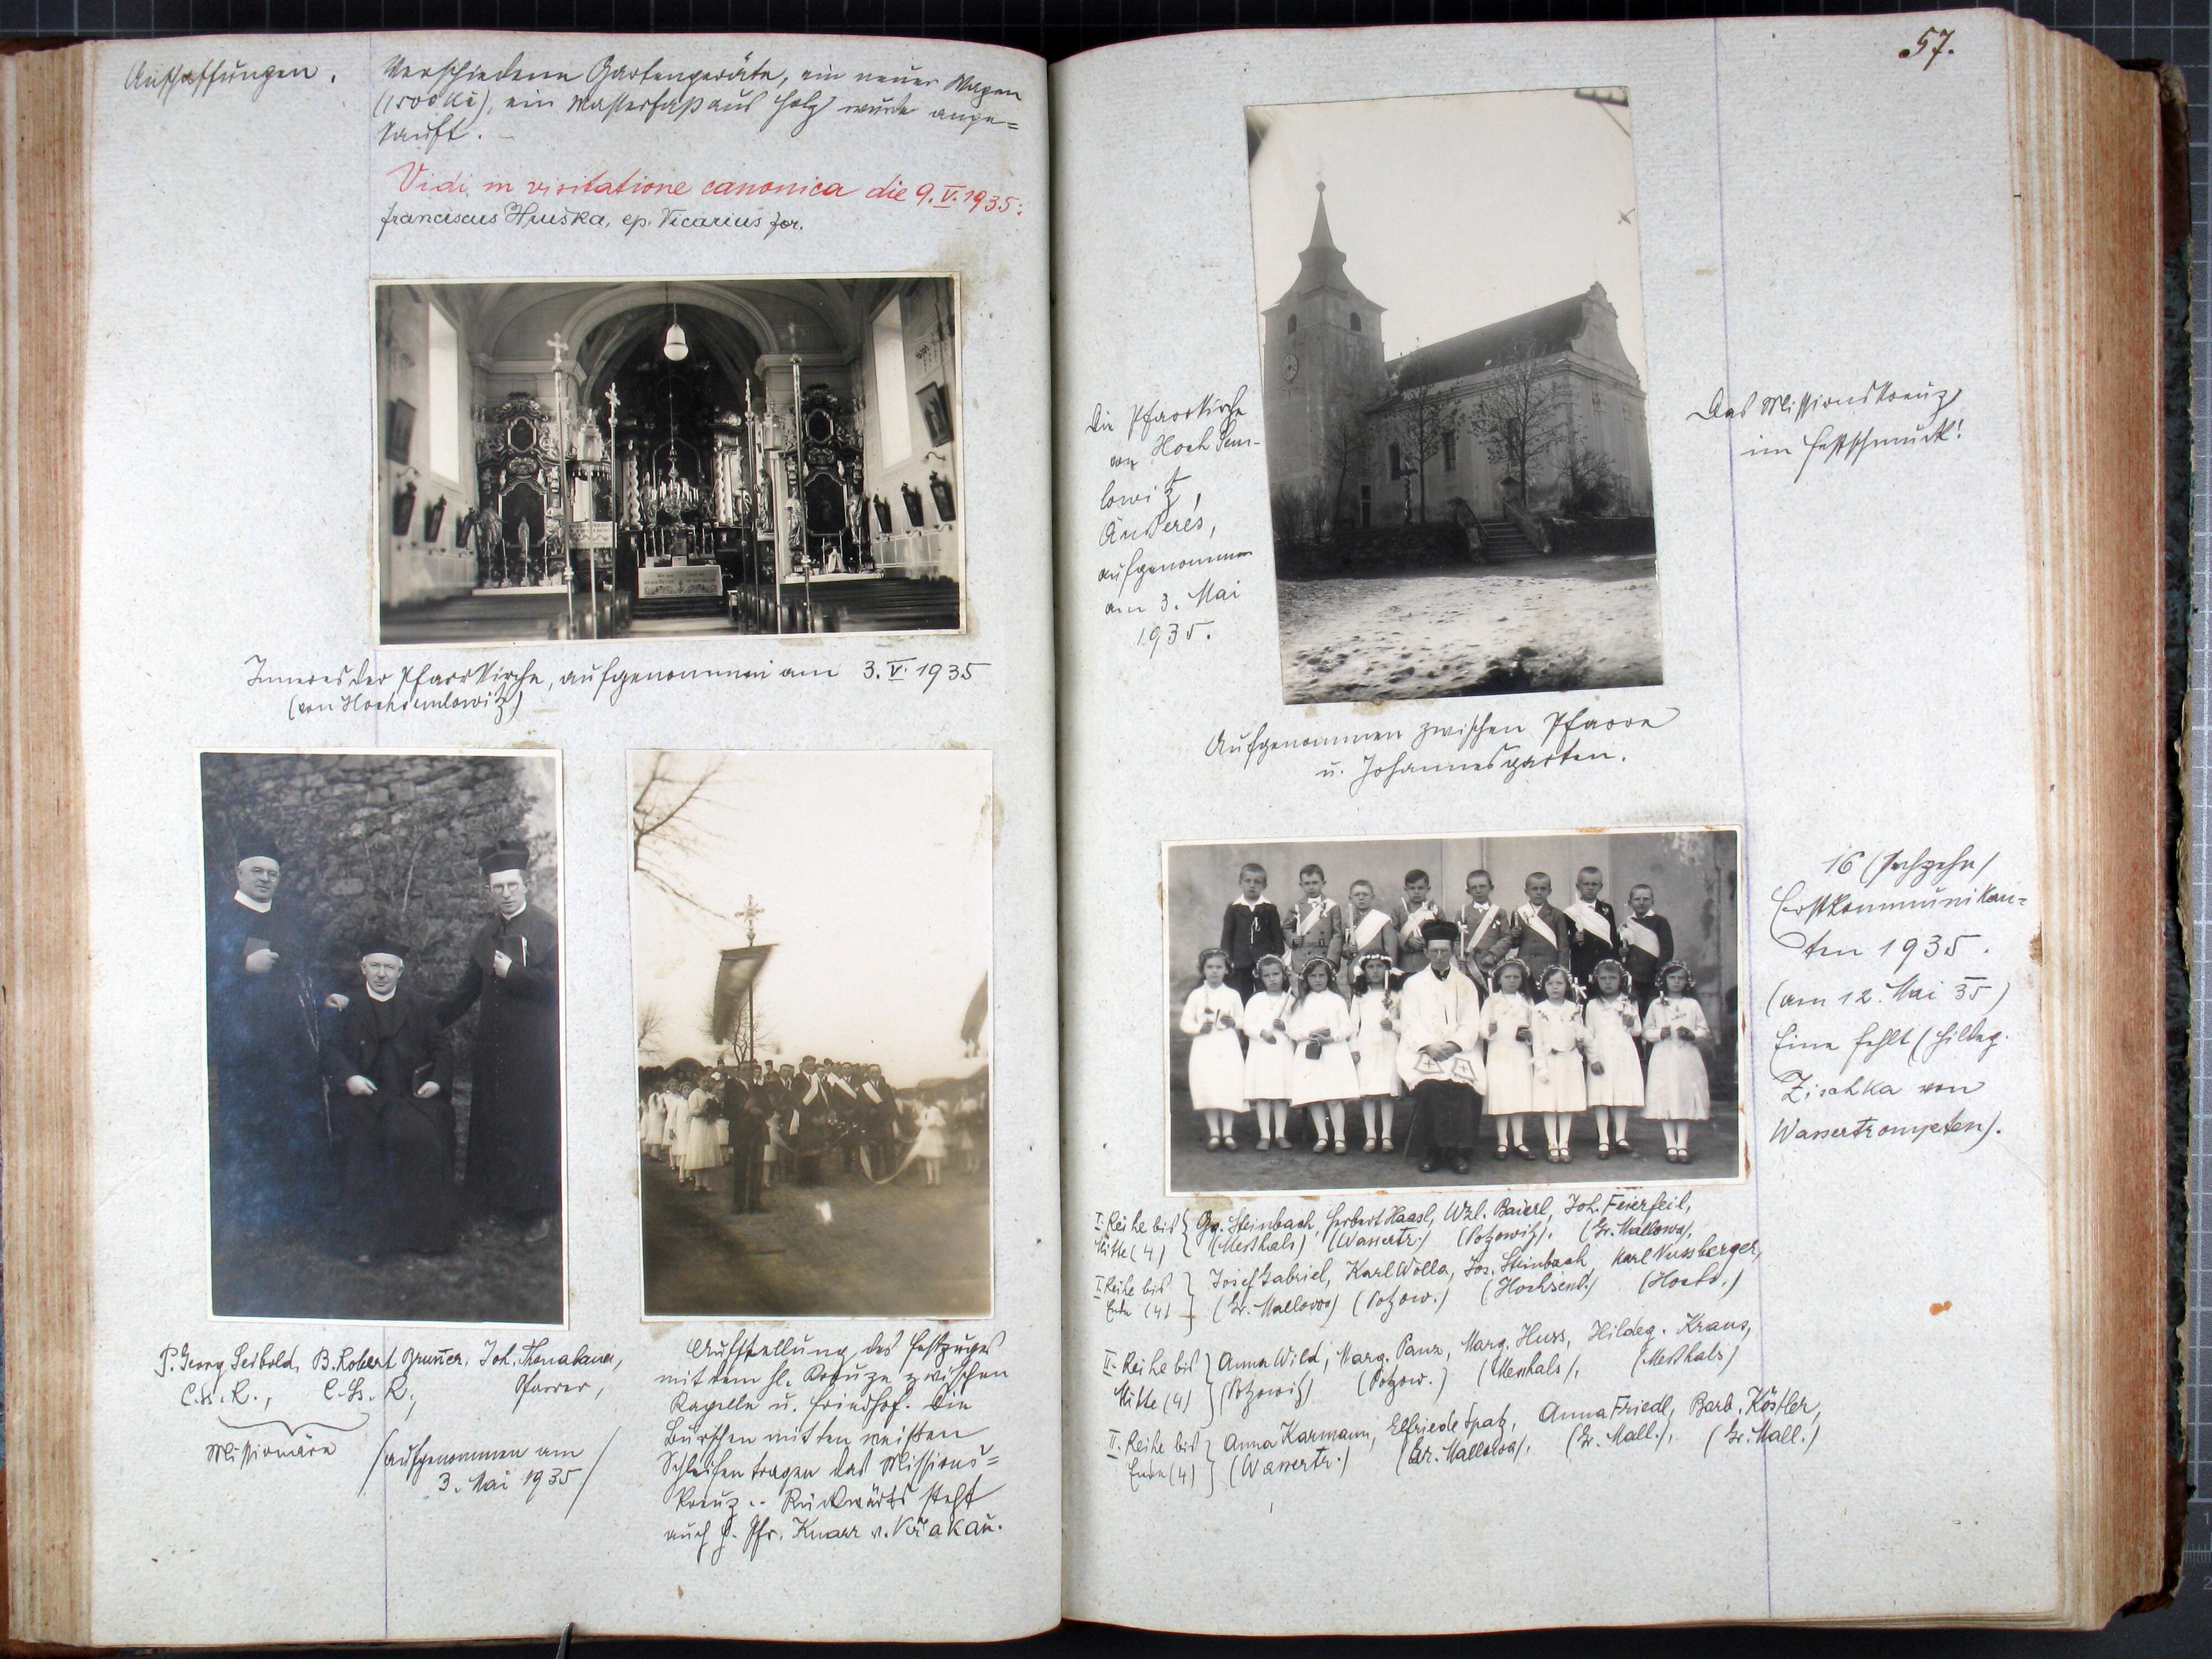 Anschaffungen.
Verschiedene Gartengeräte, ein neuer Wagen
(1500 Kč), ein Wasserfaß aus Holz wurde ange=
kauft. –
Vidi in visitatione canonica die 9. V. 1935:
franciscus Hruška, ep. Vicarius for.
Inneres der Pfarrkirche, aufgenommen am 3. V. 1935
(von Hochsemlowitz)
P. Georg Seibold, B. Robert Bruner, Joh.
C.ss.R., C.Ss.R., Pfarrer,
Missionäre
/aufgenommen am
3. Mai 1935/
Aufstellung des Festzuges
mit dem hl. Kreuze zwischen
Kapelle u. Friedhof. Die
Burschen mit den weißen
Schleifen tragen das Missions=
kreuz.. Rückwärts steht
auch H. Pfr. Knarr v. Krakau.
57.
Die Pfarrkirche
von Hoch Sem-
lowitz,
Äußeres,
aufgenommen
am 3. Mai
1935.
Das Missionskreuz
im Festschmuck!
Aufgenommen zwischen Pfarre
u. Johannesgarten.
16 (sechzehn)
Erstkommunikan-
ten 1935.
(am 12. Mai 35)
Eine fehlt (Hildeg.
Zischka von
Wassertrompeten).
I. Reihe bis Gg. Steinbach, Herbert Haasl, Wzl. Baierl, Joh. Feierfeil,
Mitte (4) (Meßhals) (Wassertr.) (Potzowitz), (Gr. Mallowa),
I. Reihe bis Josef Gabriel, Karl Wolla, Jos. Steinbach, Karl Nussberger,
Ende (4) (Gr. Mallowa) (Potzow.) (Hochseml.) (Hochs.)
II. Reihe bis Anna Wild, Marg. Panz, Marg. Huss, Hildeg. Kraus,
Mitte (4) (Potzowitz) (Potzow.) (Messhals), (Meßhals)
II. Reihe bis Anna Karmann, Elfriede Spatz, Anna Friedl, Barb. Köstler,
Ende (4) (Wassertr.) (Gr. Mallowa), (Gr. Mall.), (Gr. Mall.)